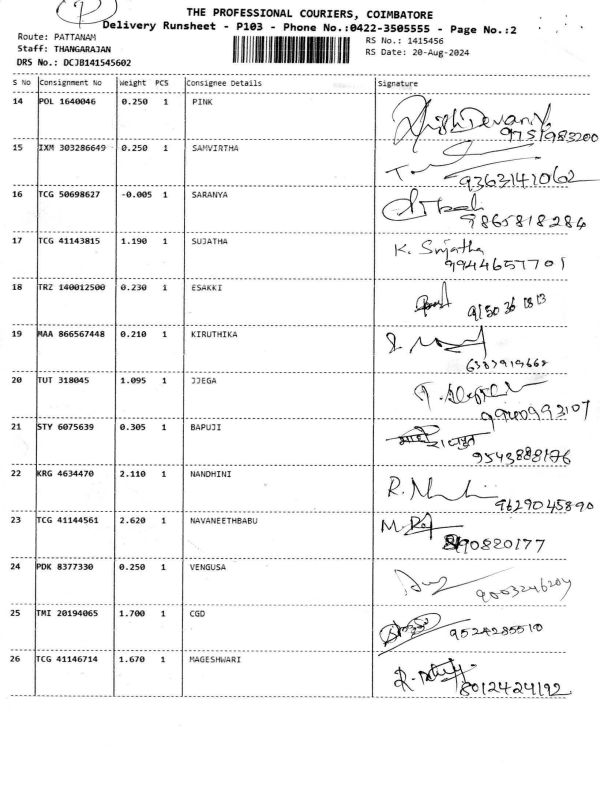 THE PROFESSIONAL COURIERS, COIMBATORE
Delivery Runsheet - P103 - Phone No.:0422-3505555 - Page No.:2
Route: PATTANAM
RS No.: 1415456
Staff: THANGARAJAN
RS Date: 20-Aug-2024
DRS No.: DCJB141545602
S No Consignment No Weight PCS Consignee Details Signature
14 POL 1640046 0.250 1 PINK
9751983200
15 IXM 303286649 0.250 1 SAMVIRTHA
9363141062
16 TCG 50698627 -0.005 1 SARANYA
9865818284
17 TCG 41143815 1.190 1 SUJATHA K. Sujatha
9944657701
18 TRZ 140012500 0.230 1 ESAKKI
9150 36 1813
19 MAA 866567448 0.210 1 KIRUTHIKA
6383919668
20 TUT 318045 1.095 1 JJEGA
9940993107
21 STY 6075639 0.305 1 BAPUJI
9543888176
22 KRG 4634470 2.110 1 NANDHINI
9629045890
23 TCG 41144561 2.620 1 NAVANEETHBABU
90820177
24 PDK 8377330 0.250 1 VENGUSA
9003246204
25 TMI 20194065 1.700 1 CGD
9524285510
26 TCG 41146714 1.670 1 MAGESHWARI
8012424192